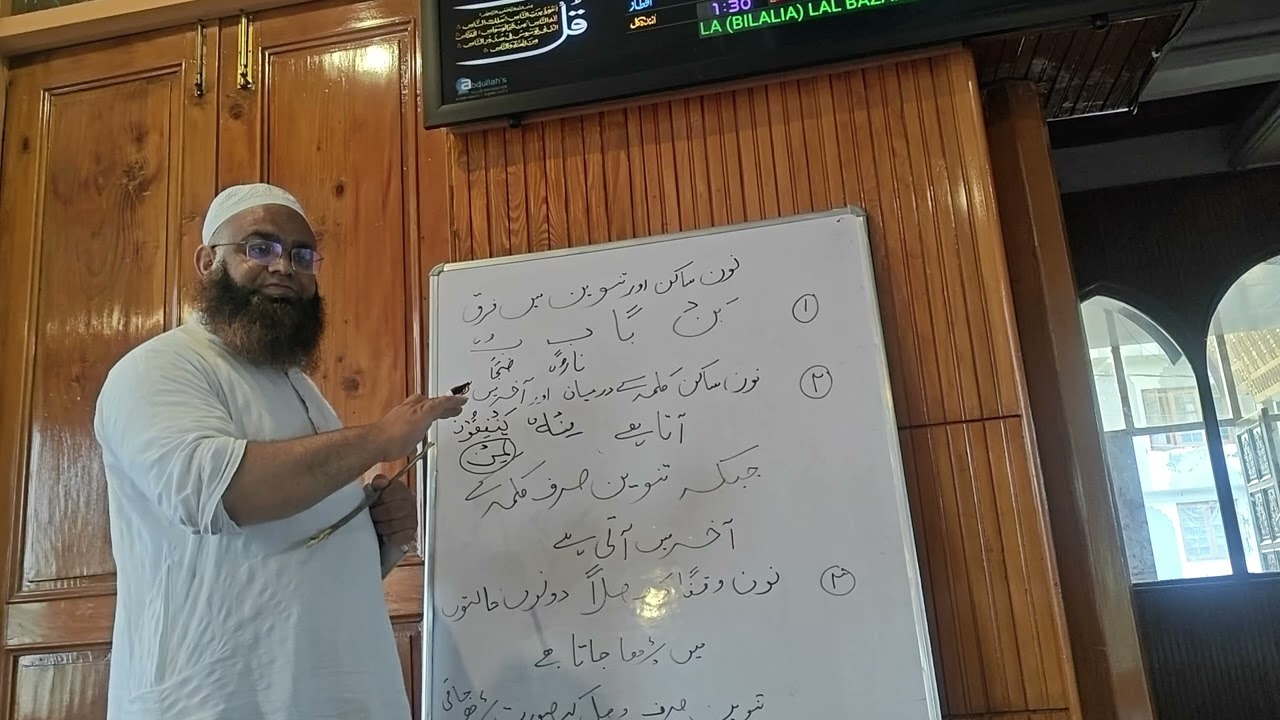 قُلْ
افطار
1:30
LA (BILALIA) LAL BAZA
abdullah's
نون ساکن اور تنوین میں فرق
① بَن باً بٍ بٌ
② نون ساکن کلمہ کے درمیان اور آخر میں
آتا ہے
جبکہ تنوین صرف کلمہ کے
آخر میں آتی ہے
③ نون وقفاً وصلاً دونوں حالتوں
میں پڑھا جاتا ہے
تنوین صرف وصل کی صورت